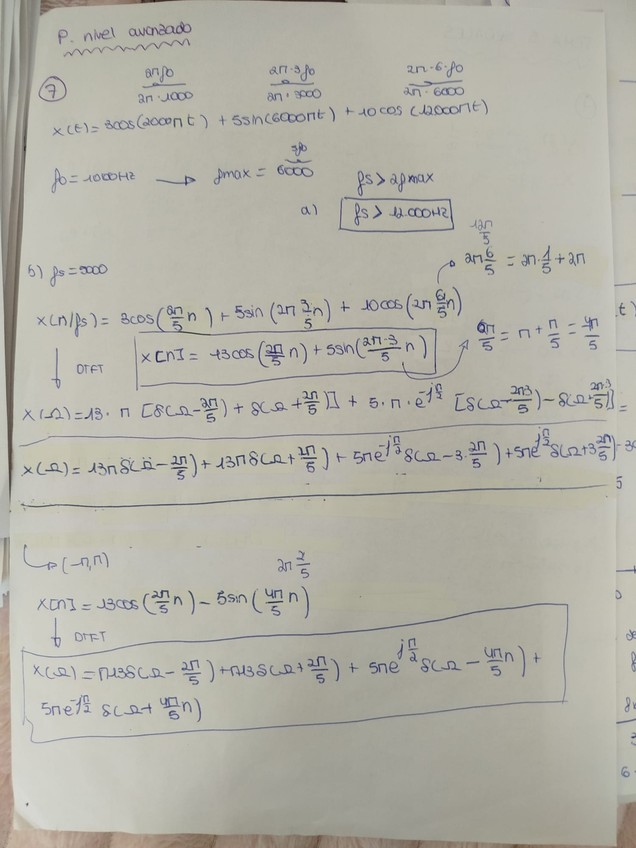 P. nivel avanzado
7
2πf0 2π·3f0 2π·6·f0
2π·1000 2π·3000 2π·6000
x(t)= 3cos(2000πt) + 5sin(6000πt) + 10cos(12000πt)
f0 = 1000Hz → fmax = 6000 fs > 2fmax
a) fs > 12.000Hz
b) fs=5000
12π/5
2π 6/5 = 2π·1/5 + 2π
x(n/fs) = 3cos(2π/5 n) + 5sin(2π 3/5 n) + 10cos(2π 6/5 n)
x[n] = 13cos(2π/5 n) + 5sin(2π·3/5 n)
6π/5 = π + π/5 = 4π/5
DTFT
X(Ω) = 13·π [δ(Ω-2π/5) + δ(Ω+2π/5)] + 5·π·e^-jπ/2 [δ(Ω-2π3/5) - δ(Ω+2π·3/5)] =
X(Ω) = 13πδ(Ω-2π/5) + 13πδ(Ω+2π/5) + 5πe^-jπ/2 δ(Ω-3·2π/5) + 5πe^jπ/2 δ(Ω+3 2π/5)
(-π,π)
2π 2/5
x[n] = 13cos(2π/5 n) - 5sin(4π/5 n)
DTFT
X(Ω) = π13δ(Ω-2π/5) + π13δ(Ω+2π/5) + 5πe^jπ/2 δ(Ω-4π/5 n) +
5πe^-jπ/2 δ(Ω+4π/5 n)